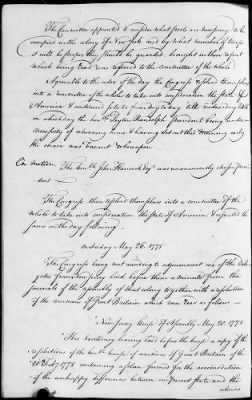 The Committee appointed to consider what posts are necessary to be
occupied in the colony of New York and by what number of troops
it will be proper they should be guarded, brought in their report
which being read was referred to the committee of the whole
Agreeable to the order of the day the Congress resolved themselves
into a committee of the whole to take into consideration the state of
America & continued so to do from day to day till Wednesday 24th
on which day the hon. Peyton Randolph President being under a
necessity of returning home & having set out this morning early
the chair was vacant whereupon
On motion The hon. John Hancock Esq. was unanimously chosen Presi
dent
The Congress then resolved themselves into a committee of the
whole to take into consideration the state of America & repeated the
same on the day following
on Friday May 26. 1775
The Congress being met according to adjournment one of the Dele
gates from New Jersey laid before them a minute from the
journals of the Assembly of that colony together with a resolution
of the commons of Great Britain which were read as follows
New Jersey house of Assembly May 20. 1775
His excellency having laid before the house a copy of the
resolutions of the hon. house of commons of Great Britain of the
20 Feby 1775 containing a plan formed for the accommodation
of the unhappy differences between our parent state and the
colonies